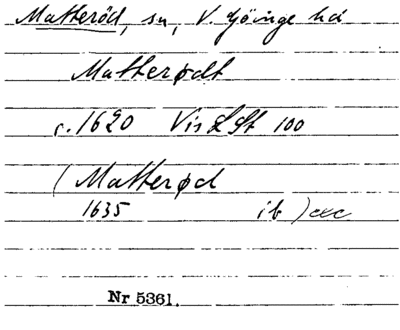 Matteröd, sn, V. Göinge hd
Matterødt
c. 1620 Vis LSt 100
(Matterød
1635 ib) etc
Nr 5361.